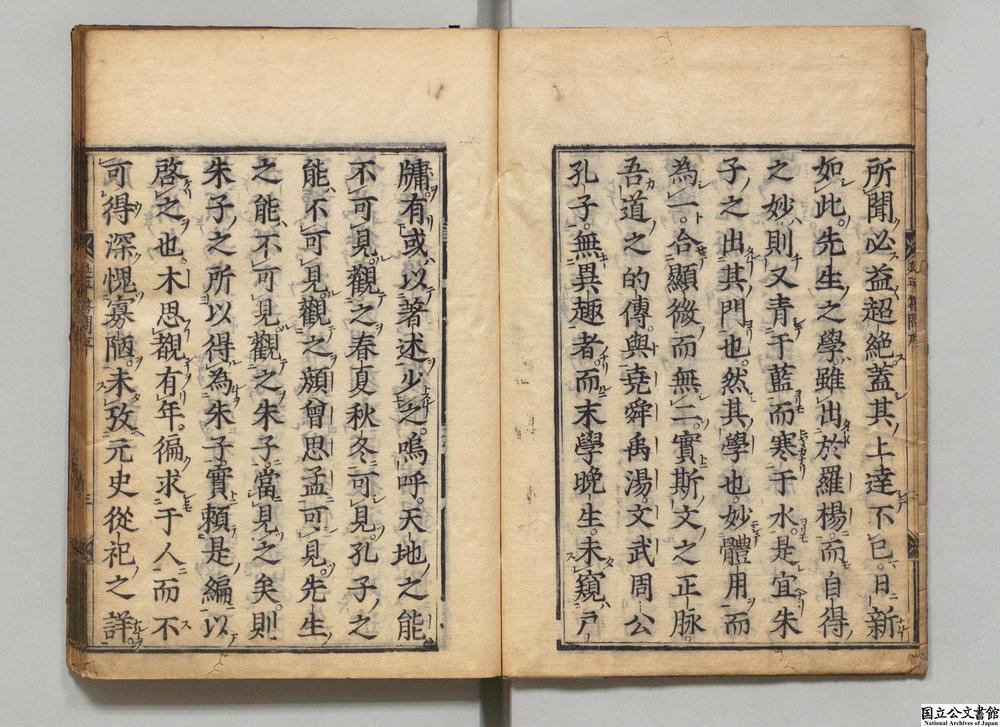 所聞必益超絶蓋其上達不已。日新
如此。先生之學雖出於羅楊。而自得
之妙。則又青于藍而寒于水。是宜朱
子之出其門也。然其學也。妙體用而
為一。合顯微而無二。實斯文之正脉。
吾道之的傳。與堯舜禹湯。文武周公
孔子。無異趣者。而末學晚生。未窺戸
牗有或以著述少之。嗚呼。天地之能
不可見。觀之春夏秋冬可見。孔子之
能不可見。觀之顔曾思孟可見。先生
之能不可見觀之朱子。當見之矣。則
朱子之所以得為朱子實頼是編以
啓之也。木思覩有年。徧求于人而不
可得深愧寡陋。未攷元史從祀之詳
国立公文書館
National Archives of Japan